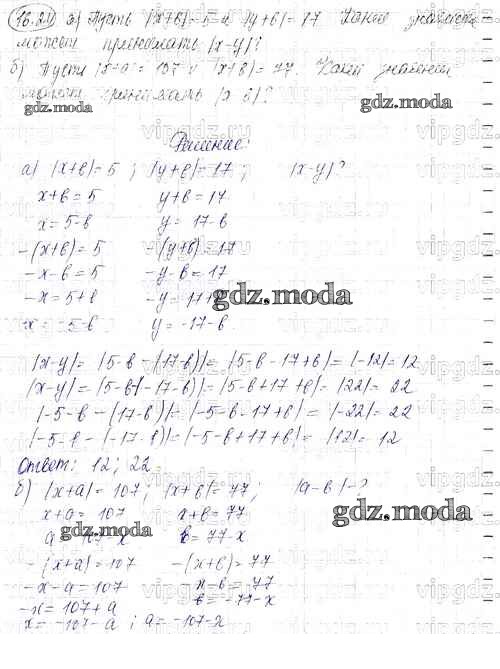 16.24 а) Пусть |x+в|=5 и |y+в|=17 Какие значения
может принимать |x-y|?
б) Пусть |x+a|=107 и |x+в|=77. Какие значения
может принимать
gdz.moda
Решение:
а) |x+в|=5 ; |y+в|=17 ; |x-y|?
x+в=5 y+в=17
x=5-в y=17-в
-(x+в)=5 -(y+в)=17
-x-в=5 -y-в=17
-x=5+в -y=17+
gdz.moda
x=-5-в y=-17-в
|x-y|=|5-в-(17-в)|=|5-в-17+в|=|-12|=12
|x-y|=|5-в-(-17-в)|=|5-в+17+в|=|22|=22
|-5-в-(17-в)|=|-5-в-17+в|=|-22|=22
|-5-в-(-17-в)|=|-5-в+17+в|=|12|=12
Ответ: 12; 22.
б) |x+a|=107; |x+в|=77; |a-в|-?
gdz.moda
x+a=107 x+в=77
gdz.moda
в=77-x
-(x+a)=107 -(x+в)=77
-x-a=107 -x-в=77
-x=107+a в=-77-x
x=-107-a ; a=-107-x
vipgdz